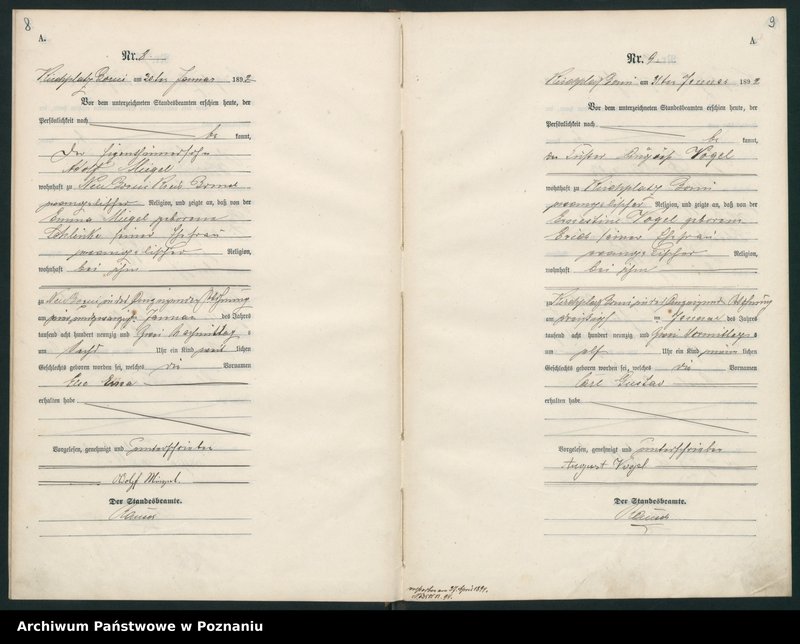 8
A.
Nr. 8
Kirchplatz Borui am 26ten Januar 1892
Vor dem unterzeichneten Standesbeamten erschien heute, der
Persönlichkeit nach
be kannt,
der Eigenthümersohn
Adolf
wohnhaft zu Neu Borui
evangelischer Religion, und zeigte an, daß von der
Emma geborene
seiner Ehefrau
evangelischer Religion,
wohnhaft bei ihm
zu Neu Borui in der Wohnung
am Januar des Jahres
tausend acht hundert neunzig und zwei Nachmittags
um sechs Uhr ein Kind lichen
Geschlechts geboren worden sei, welches die Vornamen
Erna
erhalten habe
Vorgelesen, genehmigt und unterschrieben
Adolf
Der Standesbeamte.
9
A.
Nr. 9
Kirchplatz Borui am 31ten Januar 1892
Vor dem unterzeichneten Standesbeamten erschien heute, der
Persönlichkeit nach
be kannt,
der August Vogel
wohnhaft zu Kirchplatz Borui
evangelischer Religion, und zeigte an, daß von der
Ernestine Vogel geborene
seiner Ehefrau
evangelischer Religion,
wohnhaft bei ihm
zu Kirchplatz Borui in der Wohnung
am dreißigsten Januar des Jahres
tausend acht hundert neunzig und zwei Vormittags
um elf Uhr ein Kind männ lichen
Geschlechts geboren worden sei, welches die Vornamen
Carl Gustav
erhalten habe
Vorgelesen, genehmigt und unterschrieben
August Vogel
Der Standesbeamte.
Archiwum Państwowe w Poznaniu